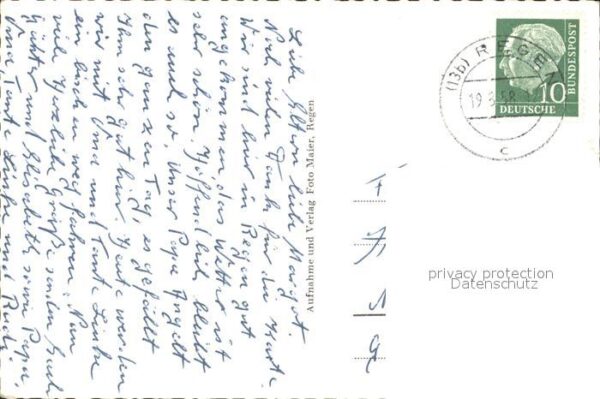 Liebe Eltern, liebe Margot.
Noch vielen Dank für die Karte.
Wir sind hier in Regen gut
angekommen, das Wetter ist
sehr schön. Hoffentlich bleibt
es auch so, unser Papa Angelt
den ganzen Tag, es gefällt
Ihm sehr gut hier. Heute werden
wir mit Oma und Tante Liesbe
ein bischen weg fahren. Nun
viele herzliche Grüße senden Euch
Günter und Elisabeth sowie Papa,
Oma, Tant Liesbe und Rudi.
Aufnahme und Verlag Foto Maier, Regen
(13b) REGEN
19.8.58
c
DEUTSCHE
BUNDESPOST
10
privacy protection
Datenschutz